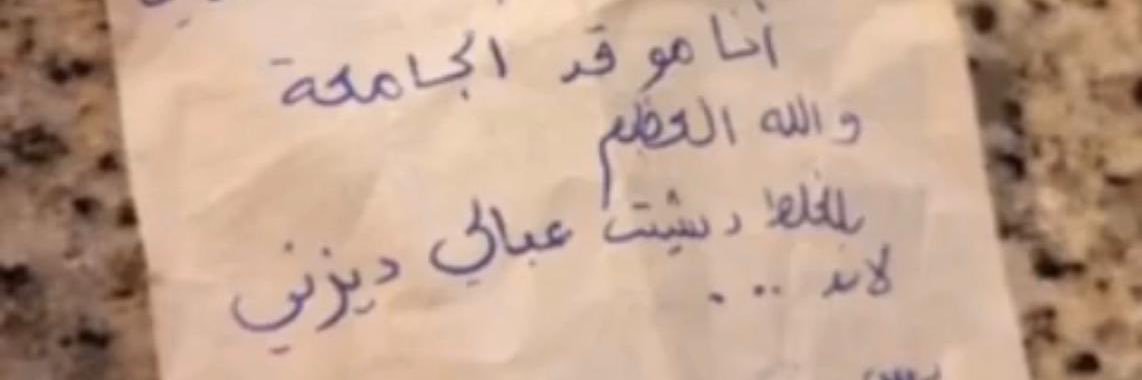 أنا مو قد الجامعة
والله العظيم
بالغلط دشيت عبالي ديزني
لاند ...
بس